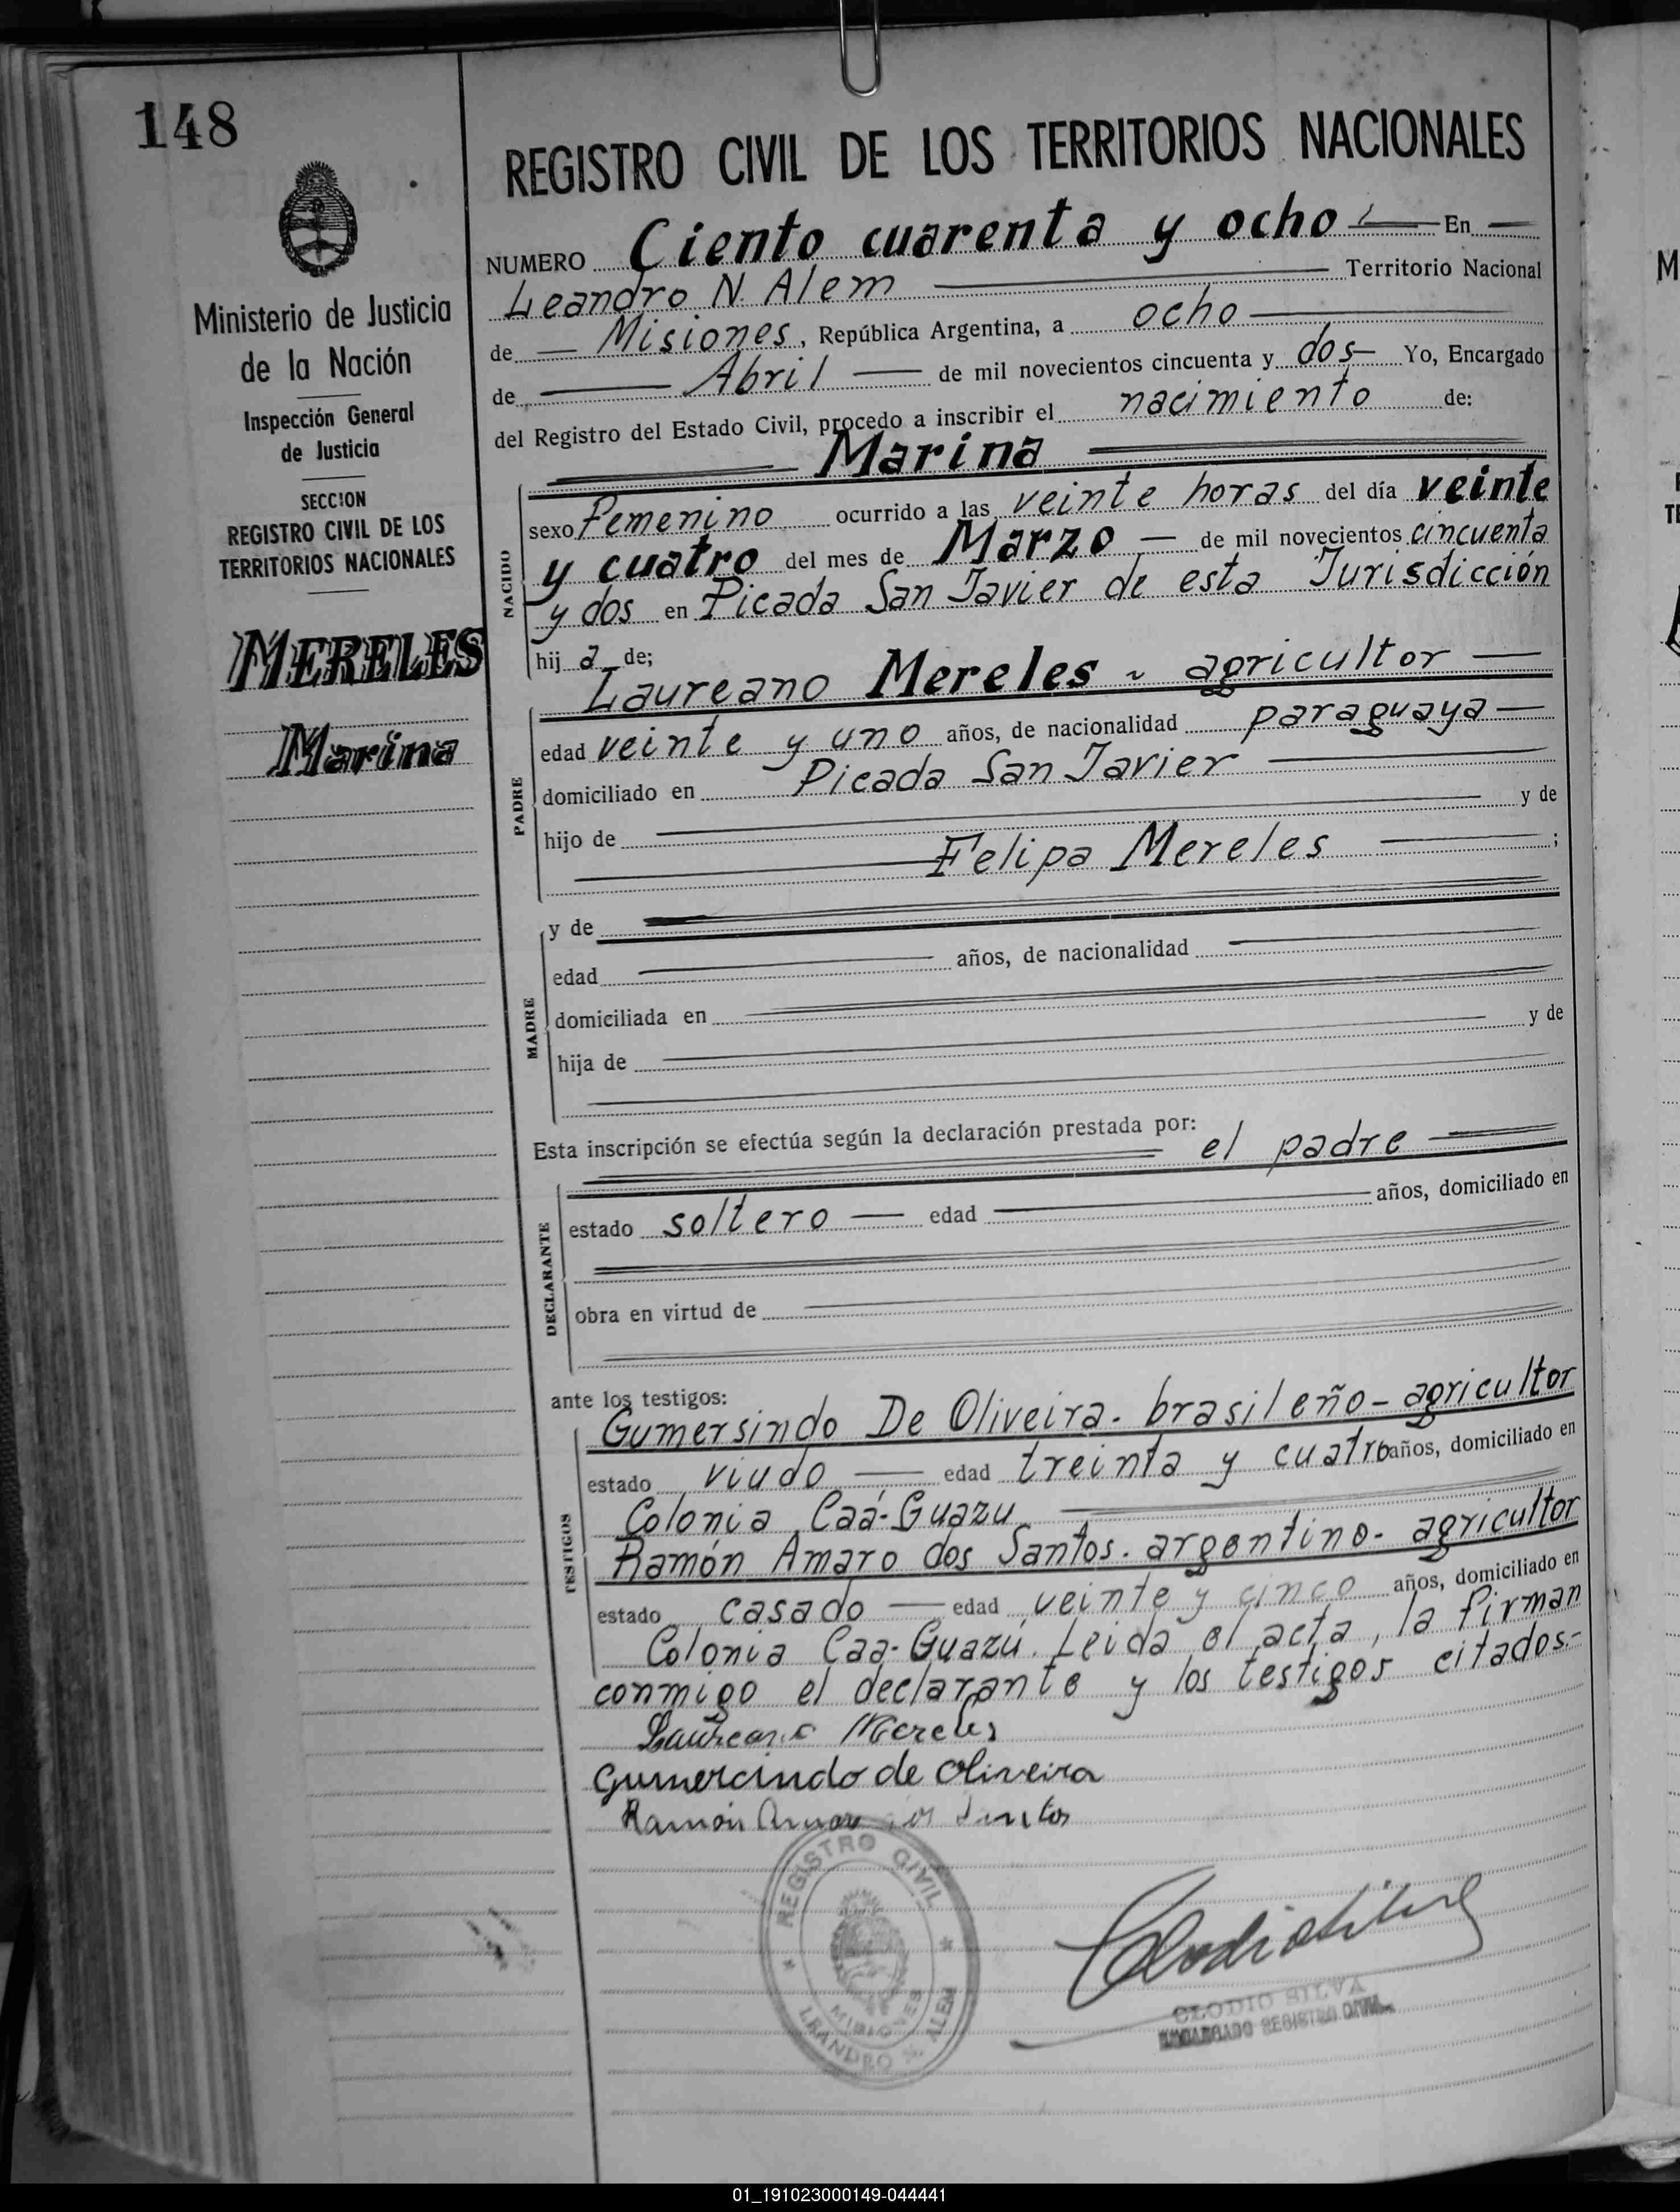 148
Ministerio de Justicia
de la Nación
Inspección General
de Justicia
SECCION
REGISTRO CIVIL DE LOS
TERRITORIOS NACIONALES
MERELES
Marina
REGISTRO CIVIL DE LOS TERRITORIOS NACIONALES
NUMERO Ciento cuarenta y ocho En
Leandro N. Alem Territorio Nacional
de Misiones, República Argentina, a ocho
de Abril de mil novecientos cincuenta y dos Yo, Encargado
del Registro del Estado Civil, procedo a inscribir el nacimiento de:
Marina
NACIDO
sexo Femenino ocurrido a las veinte horas del día veinte
y cuatro del mes de Marzo de mil novecientos cincuenta
y dos en Picada San Javier de esta Jurisdicción
hij a de;
Laureano Mereles - agricultor
PADRE
edad veinte y uno años, de nacionalidad paraguaya
domiciliado en Picada San Javier
hijo de y de
Felipa Mereles ;
MADRE
y de
edad años, de nacionalidad
domiciliada en
hija de y de
Esta inscripción se efectúa según la declaración prestada por: el padre
DECLARANTE
estado soltero edad años, domiciliado en
obra en virtud de
ante los testigos:
TESTIGOS
Gumersindo De Oliveira - brasileño - agricultor
estado viudo edad treinta y cuatro años, domiciliado en
Colonia Caá-Guazu
Ramón Amaro dos Santos - argentino - agricultor
estado casado edad veinte y cinco años, domiciliado en
Colonia Caa-Guazú. Leida el acta, la firman
conmigo el declarante y los testigos citados.-
Laureano Mereles
Gumercindo de Oliveira
Ramón Amaro dos Santos
REGISTRO CIVIL
MISIONES
LEANDRO N. ALEM
Clodio Silva
CLODIO SILVA
ENCARGADO REGISTRO CIVIL
01_191023000149-044441